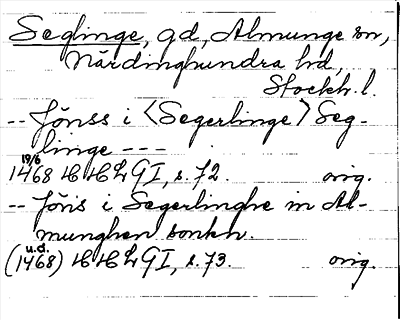 Seglinge, gd, Almunge sn,
Närdinghundra hd,
Stockh. l.
-- Jönss i <Segerlinge> Seg-
linge ---
19/6
1468 HHLGI, s. 72. orig.
-- Jöns i Segerlinghe in Al-
munghen sonkn.
u.d.
(1468) HHLGI, s. 73. orig.